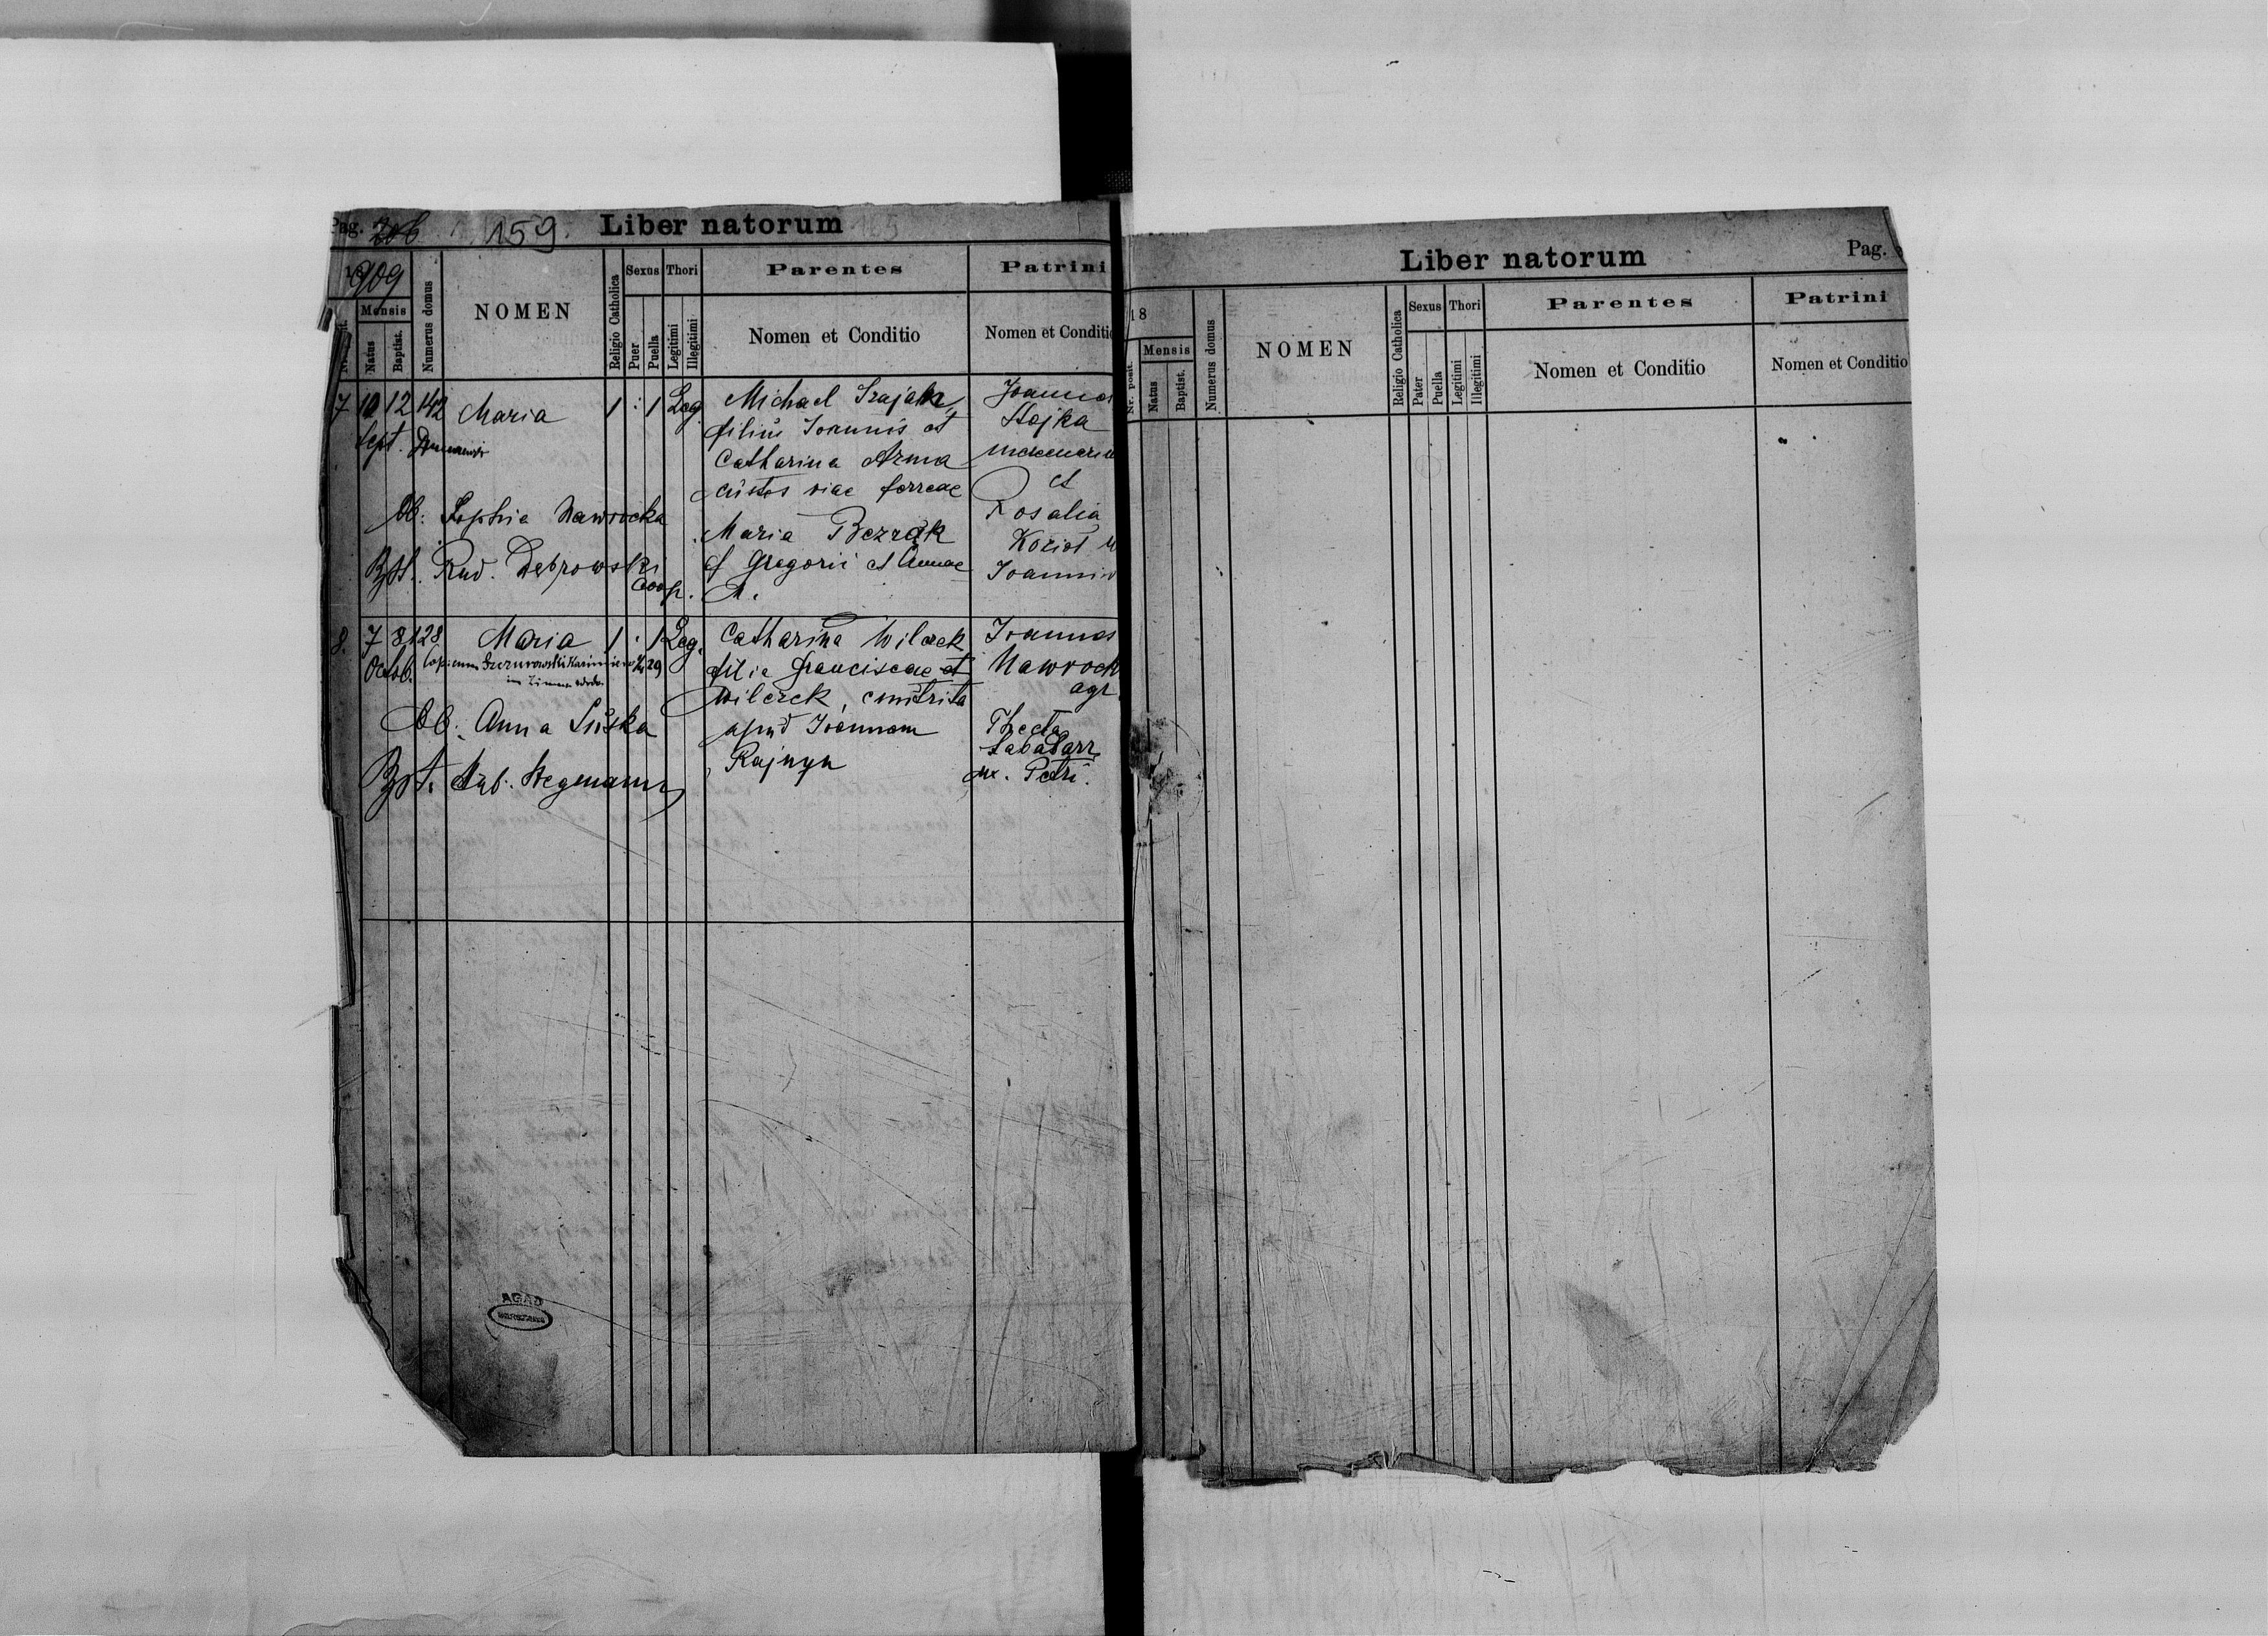 Pag. 206 159. Liber natorum
1909
Mensis
Natus
Baptist.
Numerus domus
NOMEN
Religio Catholica
Sexus
Puer
Puella
Thori
Legitimi
Illegitimi
Parentes
Nomen et Conditio
Patrini
Nomen et Conditio
7 10 12 142 Maria 1 : 1 Leg.
Sept.
Ob: Sophia Nawrocka
Bpt. Rud. Dębrowski
Coop.
Michael Szajak,
filius Joannis et
Catharina
custos viae ferreae
Maria Bezrak
f Gregorii et Annae
Joannes
Stojka
et
Rosalia
Kozioł
Joannis
8. 7 8 128 Maria 1 : 1 Leg.
Octob.
Ob: Anna Suska
Bpt. Stegmann
Catharina Wilczek
filia Franciscae et
Wilczek,
apud Joannem
Joannes
Nawrock
agr.
Thecla
ux. Petri.
AGAD
Liber natorum Pag.
18
Nr. posit.
Mensis
Natus
Baptist.
Numerus domus
NOMEN
Religio Catholica
Sexus
Pater
Puella
Thori
Legitimi
Illegitimi
Parentes
Nomen et Conditio
Patrini
Nomen et Conditio